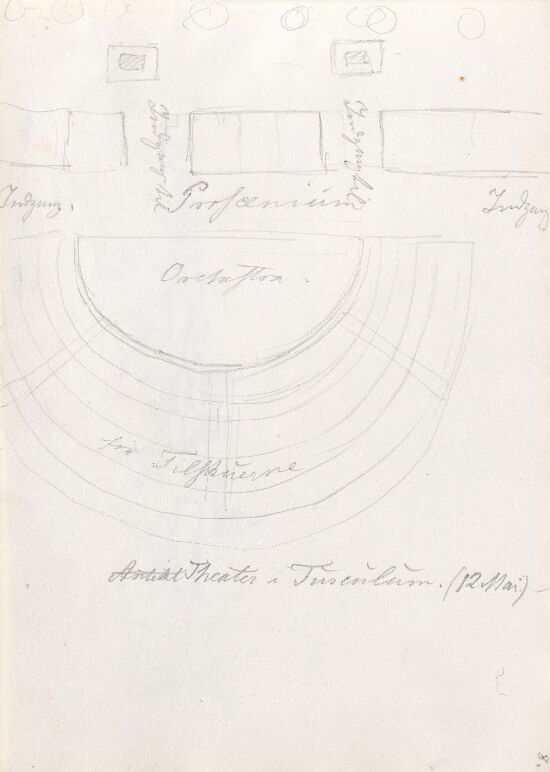 Indgang
Indgang
Indgang.
Proscenium
Indgang
Orchestra.
for Tilskuerne
Antikt Theater i Tusculum. (12 Mai)